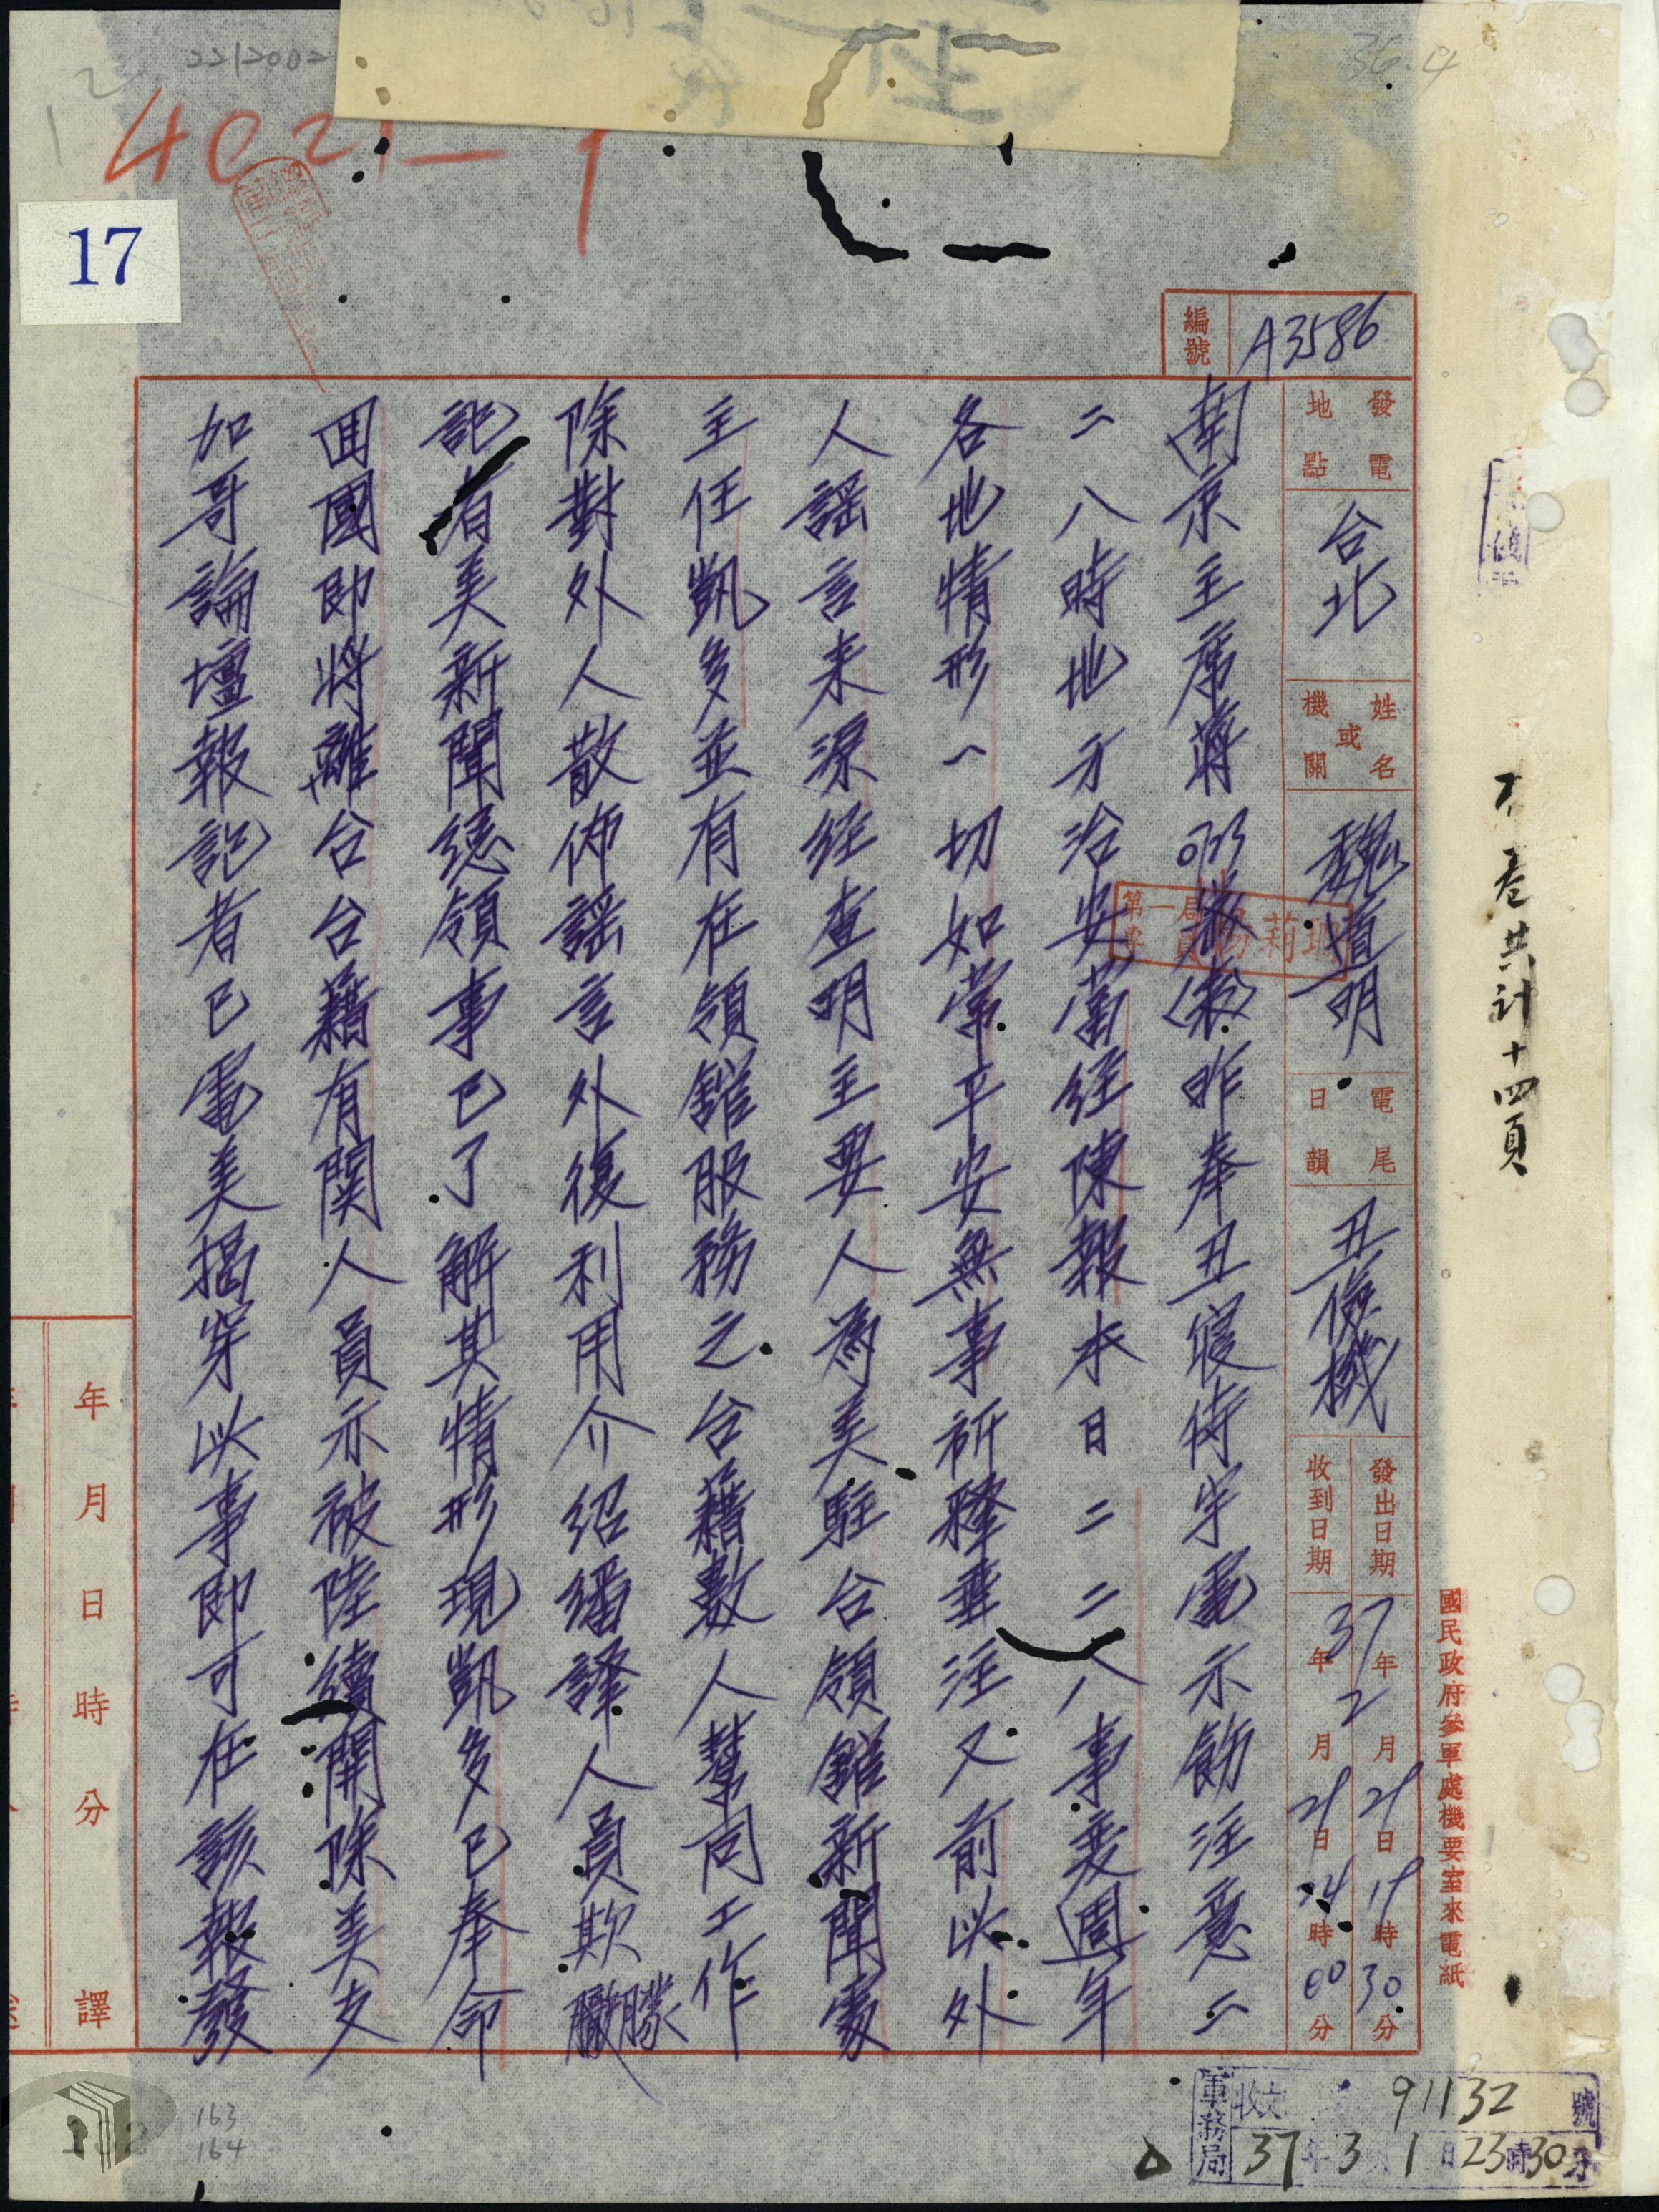 2212002
36.4
4021-1
17
編號
A3586
發電地點
台北
姓名或機關
魏道明
電尾日韻
丑儉機
發出日期
37年2月29日19時30分
收到日期
年月29日24時00分
國民政府參軍處機要室來電紙
本卷共計十四頁
南京主席蔣 昨奉丑寢侍宇電示飭注意二
二八時地方治安當經陳報本日二二八事變週年
各地情形一切如常平安無事祈釋垂注又前以外
人謠言來源經查明主要人為美駐台領館新聞處
主任凱多並有在領館服務之台籍數人幫同工作
除對外人散佈謠言外復利用介紹繙譯人員欺矇
記者美新聞總領事已了解其情形現凱多已奉命
回國即將離台台籍有關人員亦被陸續開除美支
加哥論壇報記者已電美揭穿此事即可在該報發
年月日時分譯
第一局
軍務局
收文 91132 號
37年3月1日23時30分
163
164